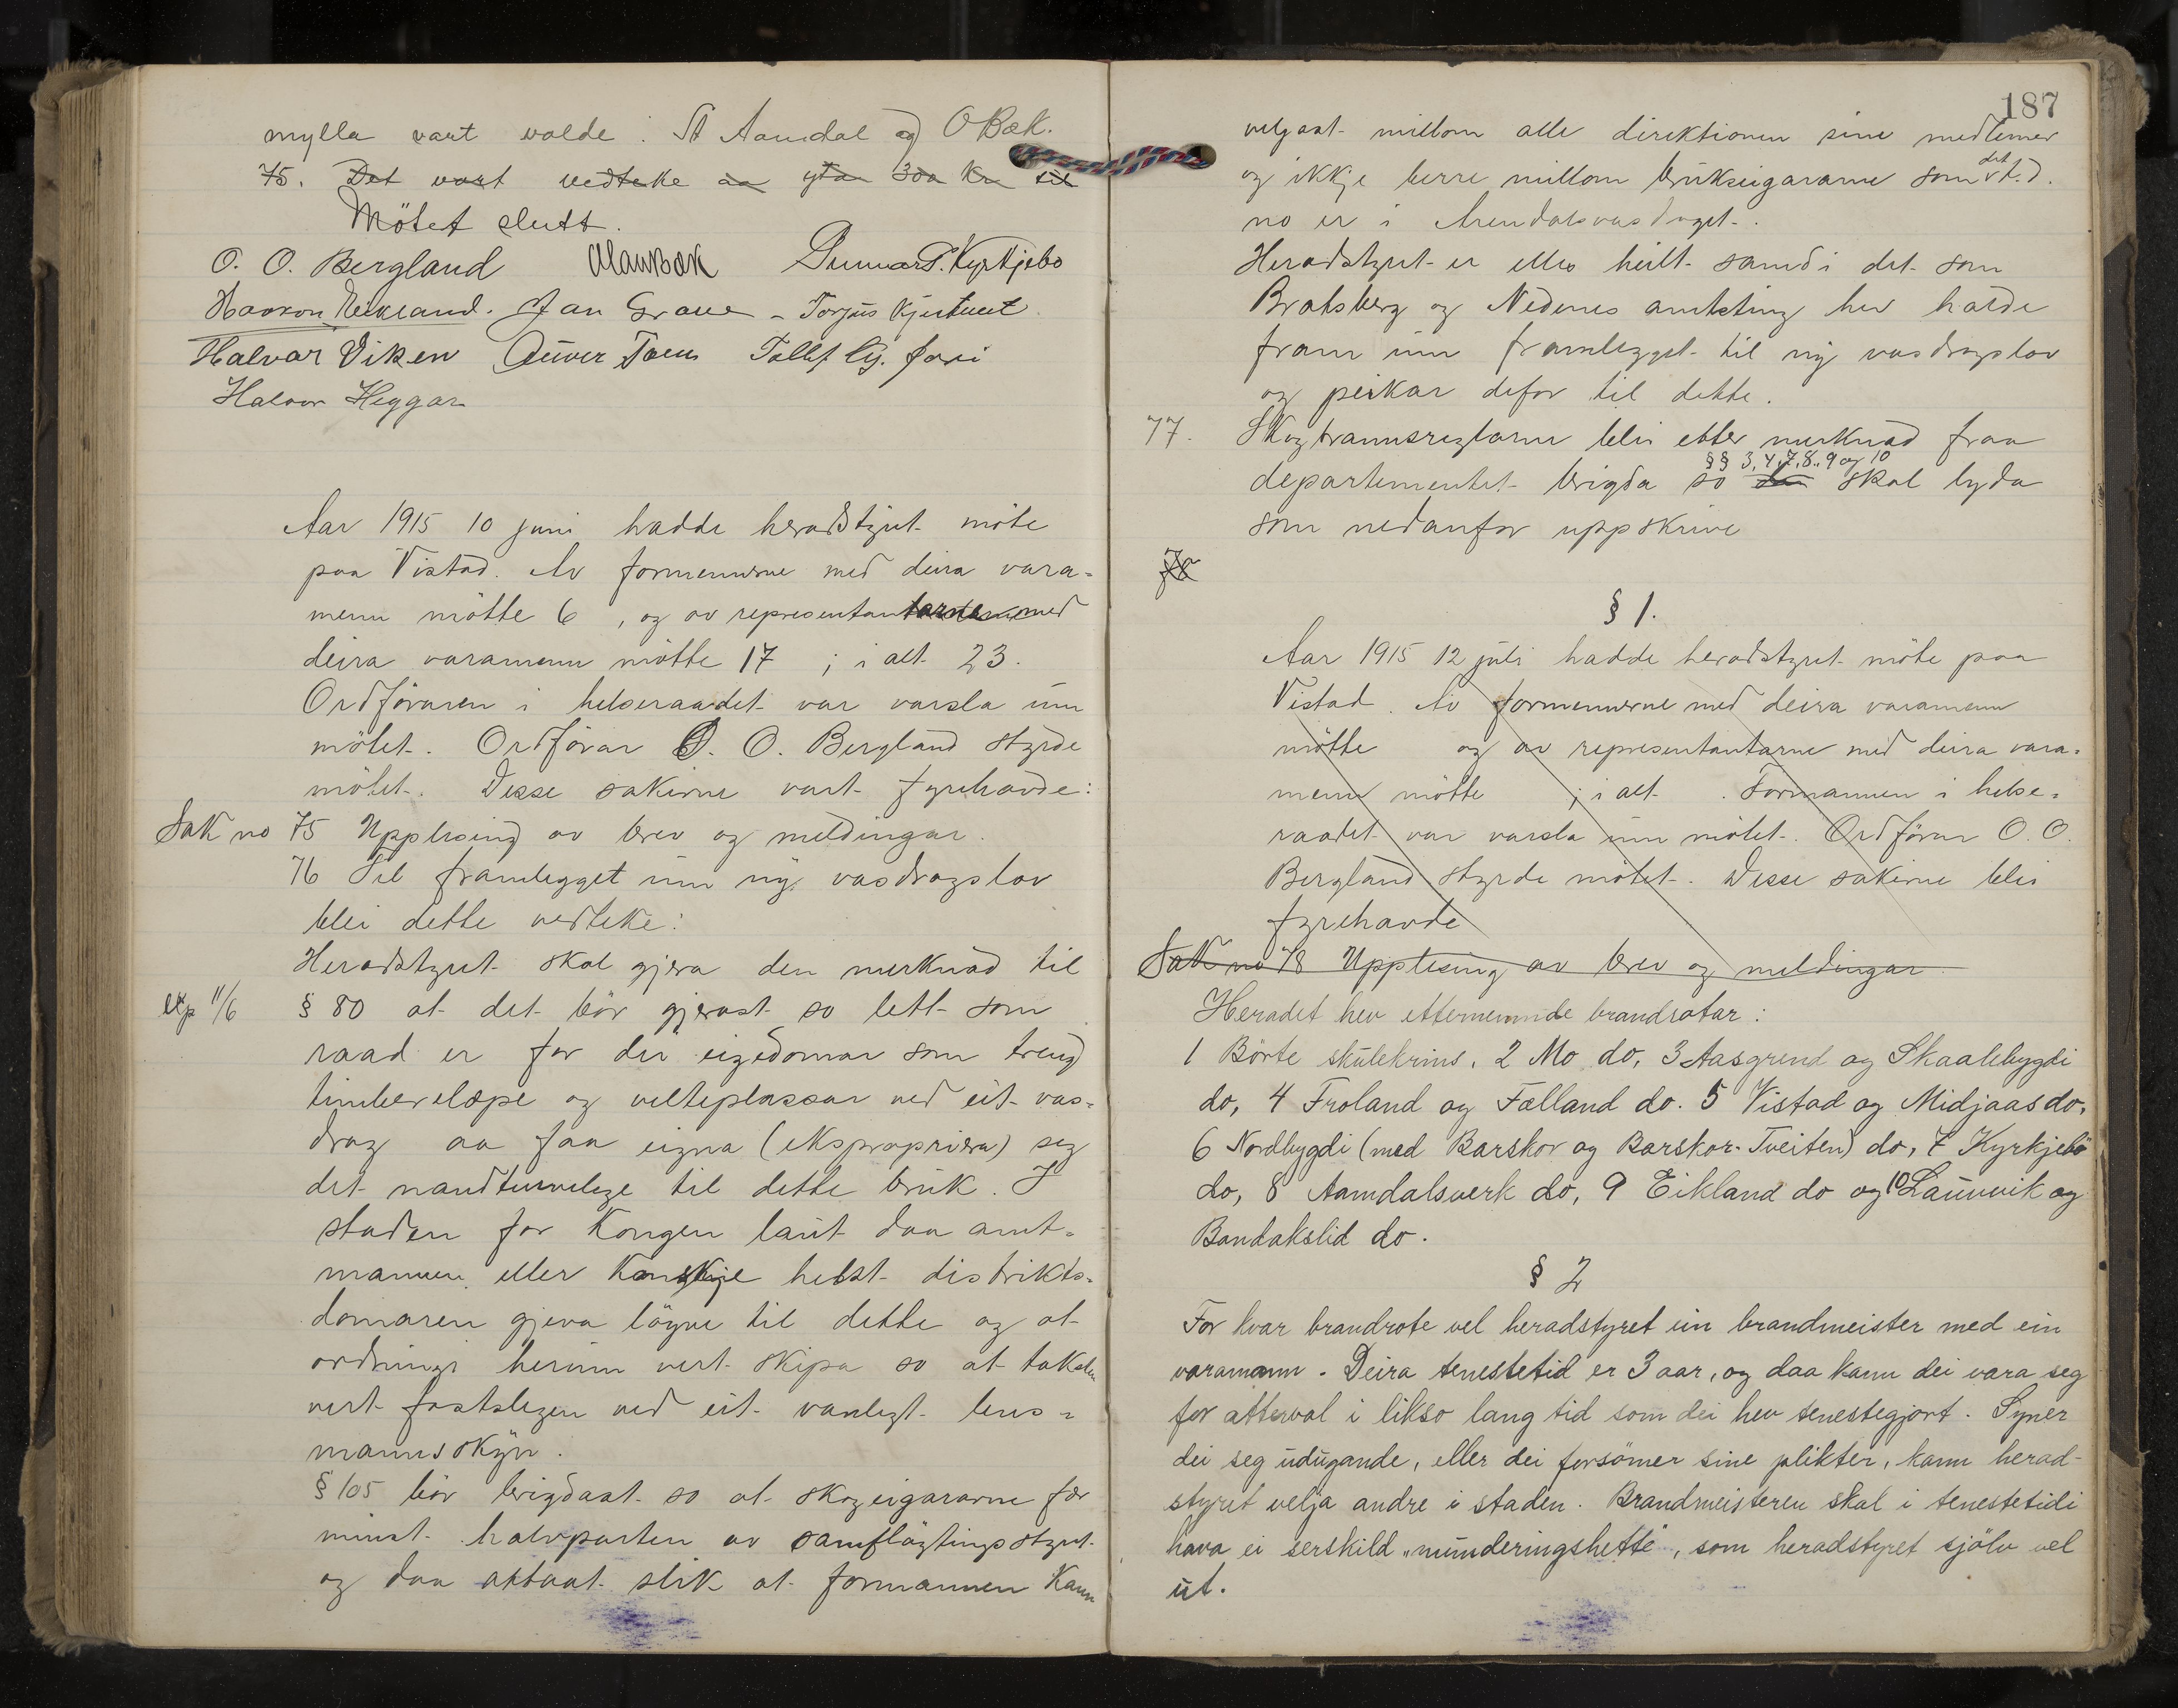 mylla vart valde: A Aamdal og O Bæk.
75. Det vart vedteke aa yta 300 Kr til
Mötet slutt.
O. O. Bergland Gunnar S. Kyrkjebø
Haavon Eikland. Jan Grave - Torjus
Halvar Viken Tallef
Halvor Heggar
Aar 1915 10 juni hadde heradstyret möte
paa Vistad. Av formennerne med deira vara=
menn mötte 6, og av representantarne med
deira varamenn mötte 17; i alt 23.
Ordföraren i helseraadet var varsla um
mötet. Ordförar O. O. Bergland styrde
mötet. Desse sakirne vart fyrehavde:
Sak no 75 Upplesing av brev og meldingar.
76 Til framlegget um ny vasdragslov
blei dette vedteke:
Heradstyret skal gjera den merknad til
exp 11/6 § 80 at det bör gjerast so lett som
raad er for dei eigedomar som treng
timberelæpe og velteplassar ved eit vas=
drag aa faa eigna (ekspropriera) seg
det naudturvelege til dette bruk. I
staden for Kongen laut daa amt=
mannen eller Kanskje helst distrikts=
domaren gjeva löyve til dette og at
ordningi herum vert skipa so at taksten
vert fastslegen ved eit vanlegt lens=
mannsskyn.
§ 105 bör brigdast so at skogeigararne fær
minst halvparten av samflöytingsstyret
og daa aktaat slik at formannen Kann
187
veljast millom alle direktionen sine medlemer
og ikkje berre millom brukseigararne som det t.d.
no er i Arendalsvasdraget.
Heradstyret er elles heilt samd i det som
Bratsberg og Nedenes amtsting hev halde
fram um framlegget til ny vasdragslov
og peikar defor til dette.
77. Skogbrannsreglarne blei etter merknad fraa
§§ 3, 4, 7, 8, 9 og 10
departementet brigda so dei skal lyda
som nedanfor uppskrive
78
§ 1.
Aar 1915 12 juli hadde heradstyret möte paa
Vistad. Av formennerne med deira varamenn
mötte og av representantarne med deira vara=
menn mötte ; i alt . Formannen i helse=
raadet var varsla um mötet. Ordförar O. O.
Bergland styrde mötet. Desse sakirne blei
fyrehavde
Sak no 78 Upplesing av brev og meldingar
Heradet hev etternemnde brandrotar:
1 Börte skulekrins, 2 Mo do, 3 Aasgrend og Skaalebygdi
do, 4 Froland og Fælland do. 5 Vistad og Midjaas do,
6 Nordbygdi (med Barskor og Barskor-Tveiten) do, 7 Kyrkjebö
do, 8 Aamdalsverk do, 9 Eikland do og 10 Lauvvik og
Bandakslid do.
§ 2
For kvar brandrote vel heradstyret ein brandmeister med ein
varamann. Deira tenestetid er 3 aar, og daa kann dei vara seg
for atterval i likso lang tid som dei hev tenestegjort. Syner
dei seg udugande, eller dei forsömer sine plikter, kann herad-
styret velja andre i staden. Brandmeisteren skal i tenestetidi
hava ei serskild „munderingshette", som heradstyret sjölv vel
ut.